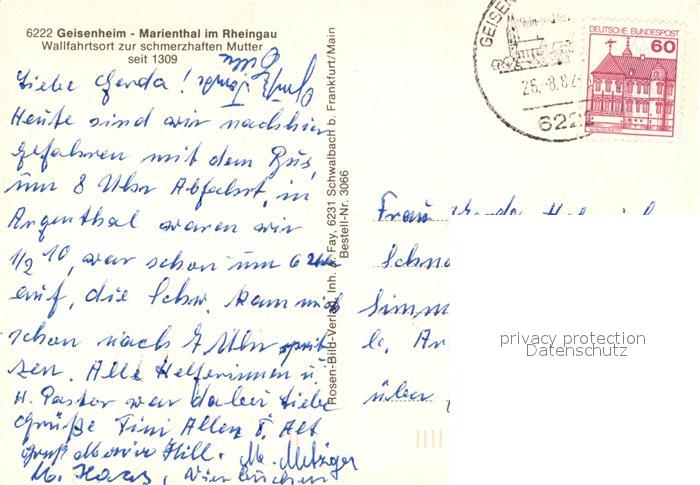 6222 Geisenheim - Marienthal im Rheingau
Wallfahrtsort zur schmerzhaften Mutter
seit 1309
Liebe Gerda!
Heute sind wir nach hier
gefahren mit dem Bus,
um 8 Uhr Abfahrt, in
Argenthal waren wir
1/2 10, war schon um 6 Uhr
auf, die Schw. kam mich
schon nach 7 Uhr sprit
zen. Alle Helferinnen u.
H. Pastor war dabei Liebe
Grüße Fini Allen
Gruß Maria Hill. M. Metzger
M. Haas,
Rosen-Bild-Verlag, Inh. Fay, 6231 Schwalbach b. Frankfurt/Main
Bestell-Nr. 3066
GEISEN
26.-8.82
6222
DEUTSCHE BUNDESPOST
60
Frau Gerda
Simm
über
privacy protection
Datenschutz